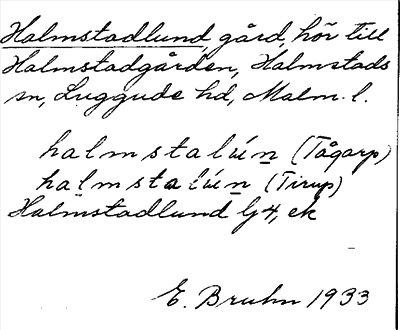 Halmstadlund, gård, hör till
Halmstadgården, Halmstads
sn, Luggude hd, Malm. l.
halmstalúṉ (Tågarp)
halmstalúṉ (Tirup)
Halmstadlund Lj 4, ek
E. Bruhn 1933